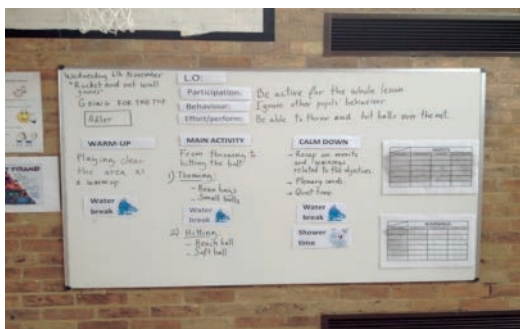 Wednesday 6th November
"Racket and net wall games"
GOING FOR THE TOP
Adler
L.O:
Participation: Be active for the whole lesson
Behaviour: Ignore other pupils' behaviour.
Effort/perform: Be able to throw and hit balls over the net.
WARM-UP
Playing clear
the area as
a warm up
Water
break
MAIN ACTIVITY
From throwing to
hitting the ball
1) Throwing
- Bean bags
- Small balls
Water
break
2) Hitting
- Beach ball
- Soft ball
CALM DOWN
- Recap on merits
and warnings
related to the objectives
- Plenary cards
- Quiet time
Water
break
Shower
time
PYRAMID
MERITS
WARNINGS